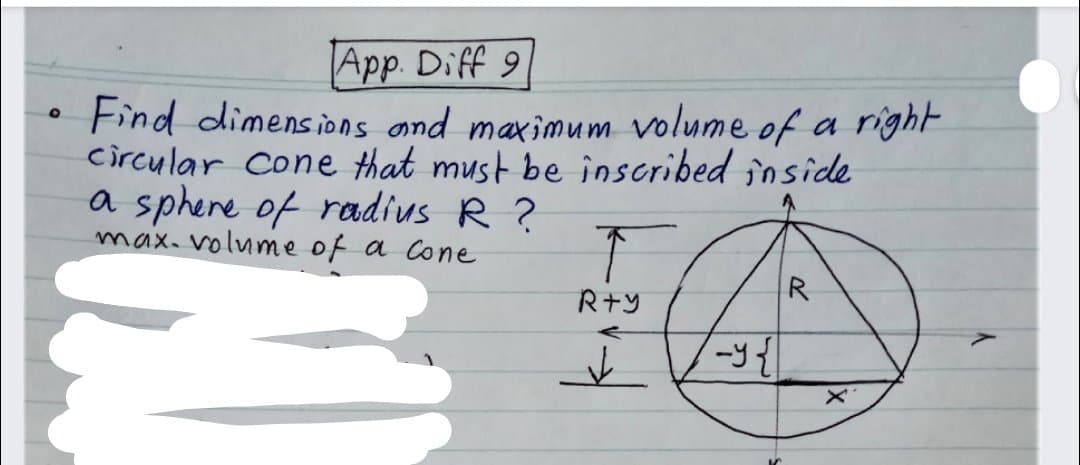 App. Diff 9
• Find dimensions and maximum volume of a right
circular cone that must be inscribed inside
a sphere of radius R ?
max. volume of a cone
R+y
R
-y {
x